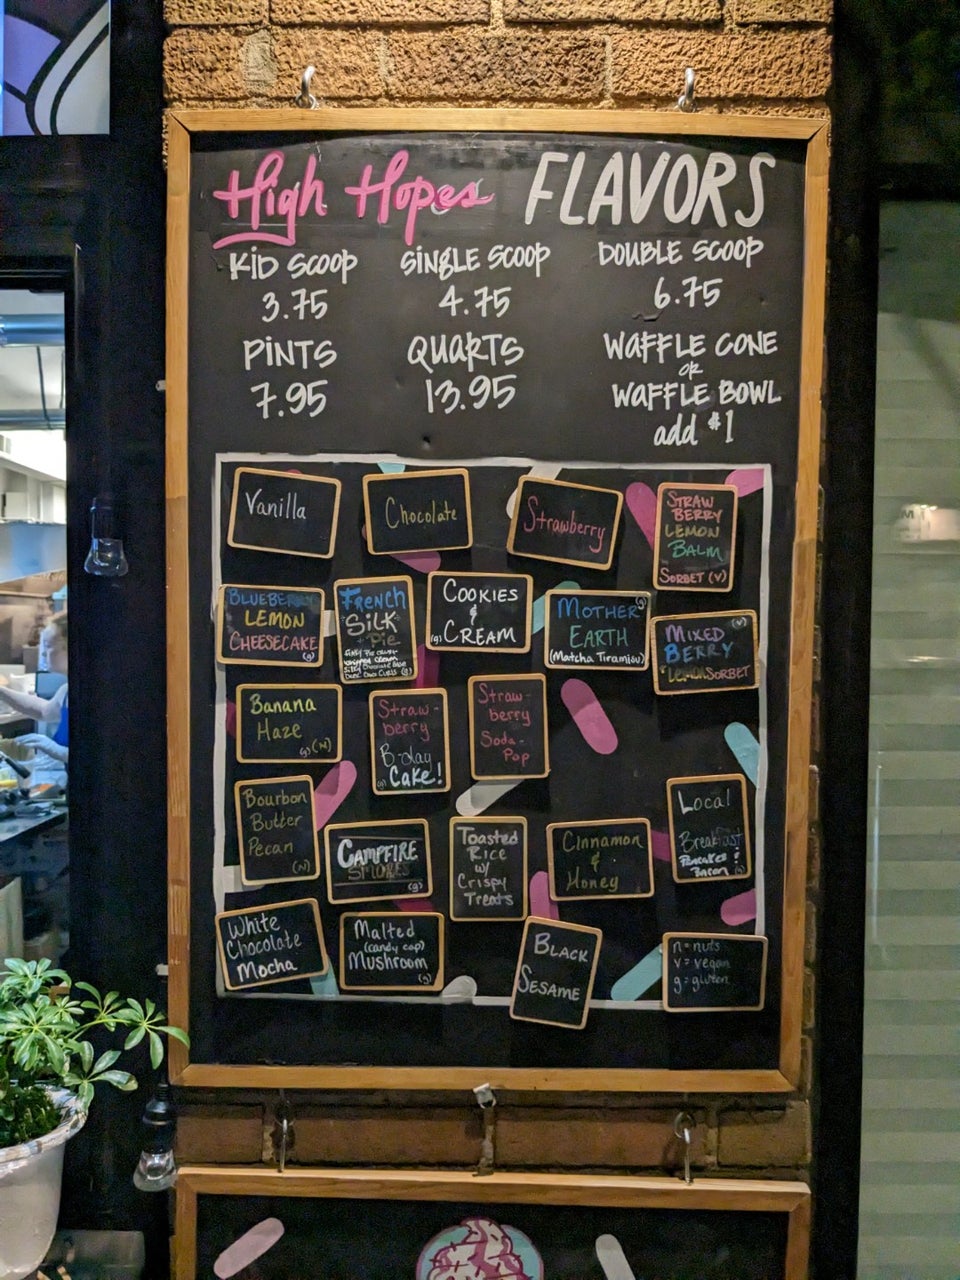 High Hopes FLAVORS
KiD SCOOP
3.75
SiNGLE SCOOP
4.75
DOUBLE SCOOP
6.75
PiNTS
7.95
QUARTS
13.95
WAFFLE CONE
OR
WAFFLE BOWL
add $1
Vanilla
Chocolate
Strawberry
STRAW
BERRY
LEMON
BALM
SORBET (V)
BLUEBERRY
LEMON
CHEESECAKE
(g)
FRENCH
SiLK
Pie
(g)
COOKIES
&
(g) CREAM
MOTHER (g)
EARTH
(Matcha Tiramisu)
(V)
MIXED
BERRY
LEMON SORBET
Banana
Haze
(g)(N)
Straw-
berry
B-day
(g) Cake!
Straw-
berry
Soda-
Pop
Bourbon
Butter
Pecan
(N)
CAMPFIRE
SMORES
(g)
Toasted
Rice
w/
Crispy
Treats
Cinnamon
&
Honey
Local
Breakfast
Pancakes &
Bacon (g)
White
Chocolate
Mocha
Malted
(candy cap)
Mushroom
(g)
BLACK
SESAME
n = nuts
v = vegan
g = gluten